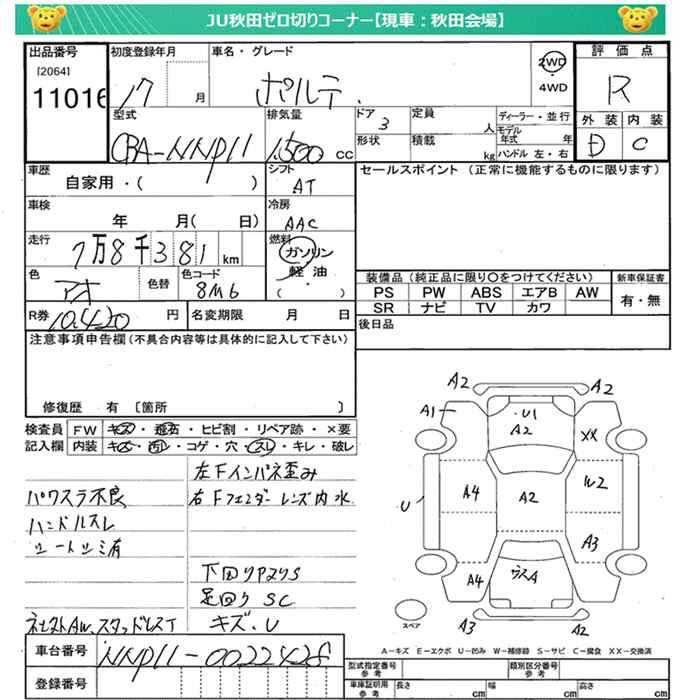 JU秋田ゼロ切りコーナー【現車：秋田会場】
出品番号
[2064]
11016
初度登録年月
17
月
車名・グレード
ポルテ
2WD
・
4WD
評価点
R
型式
CBA-NNP11
排気量
1,500 CC
ドア
3
形状
定員
人
積載
kg
ディーラー・並行
モデル年式 年
ハンドル 左・右
外装 内装
D C
車歴
自家用・( )
シフト
AT
セールスポイント (正常に機能するものに限ります)
車検
年 月( 日)
冷房
AAC
走行
7万8千381 km
燃料
ガソリン
軽油
・
( )
色
アオ
色替
色コード
8M6
装備品 (純正品に限り○をつけてください)
PS PW ABS エアB AW
SR ナビ TV カワ
新車保証書
有・無
R券 10,420 円
名変期限 月 日
後日品
注意事項申告欄(不具合内容等は具体的に記入して下さい)
修復歴 有 〔箇所 〕
検査員記入欄
FW キズ・飛石・ヒビ割・リペア跡・×要
内装 キズ・汚レ・コゲ・穴・スレ・キレ・破レ
左Fインパネ歪み
パワステ不良
右Fフェンダーレンズ内水
ハンドルスレ
シートシミ有
下回りPサビS
足回りSC
社外AW、スタッドレスT
キズ、U
車台番号 NNP11-0022428
登録番号
A2
A2
A1
U1
A2
XX
A4
A2
W2
U
A3
A4
A
スペア
A3
A2
A−キズ E−エクボ U−凹み W−補修跡 S−サビ C−腐食 XX−交換済
型式指定番号
参考
類別区分番号
参考
車庫証明用
参考
長さ cm
幅 cm
高さ cm